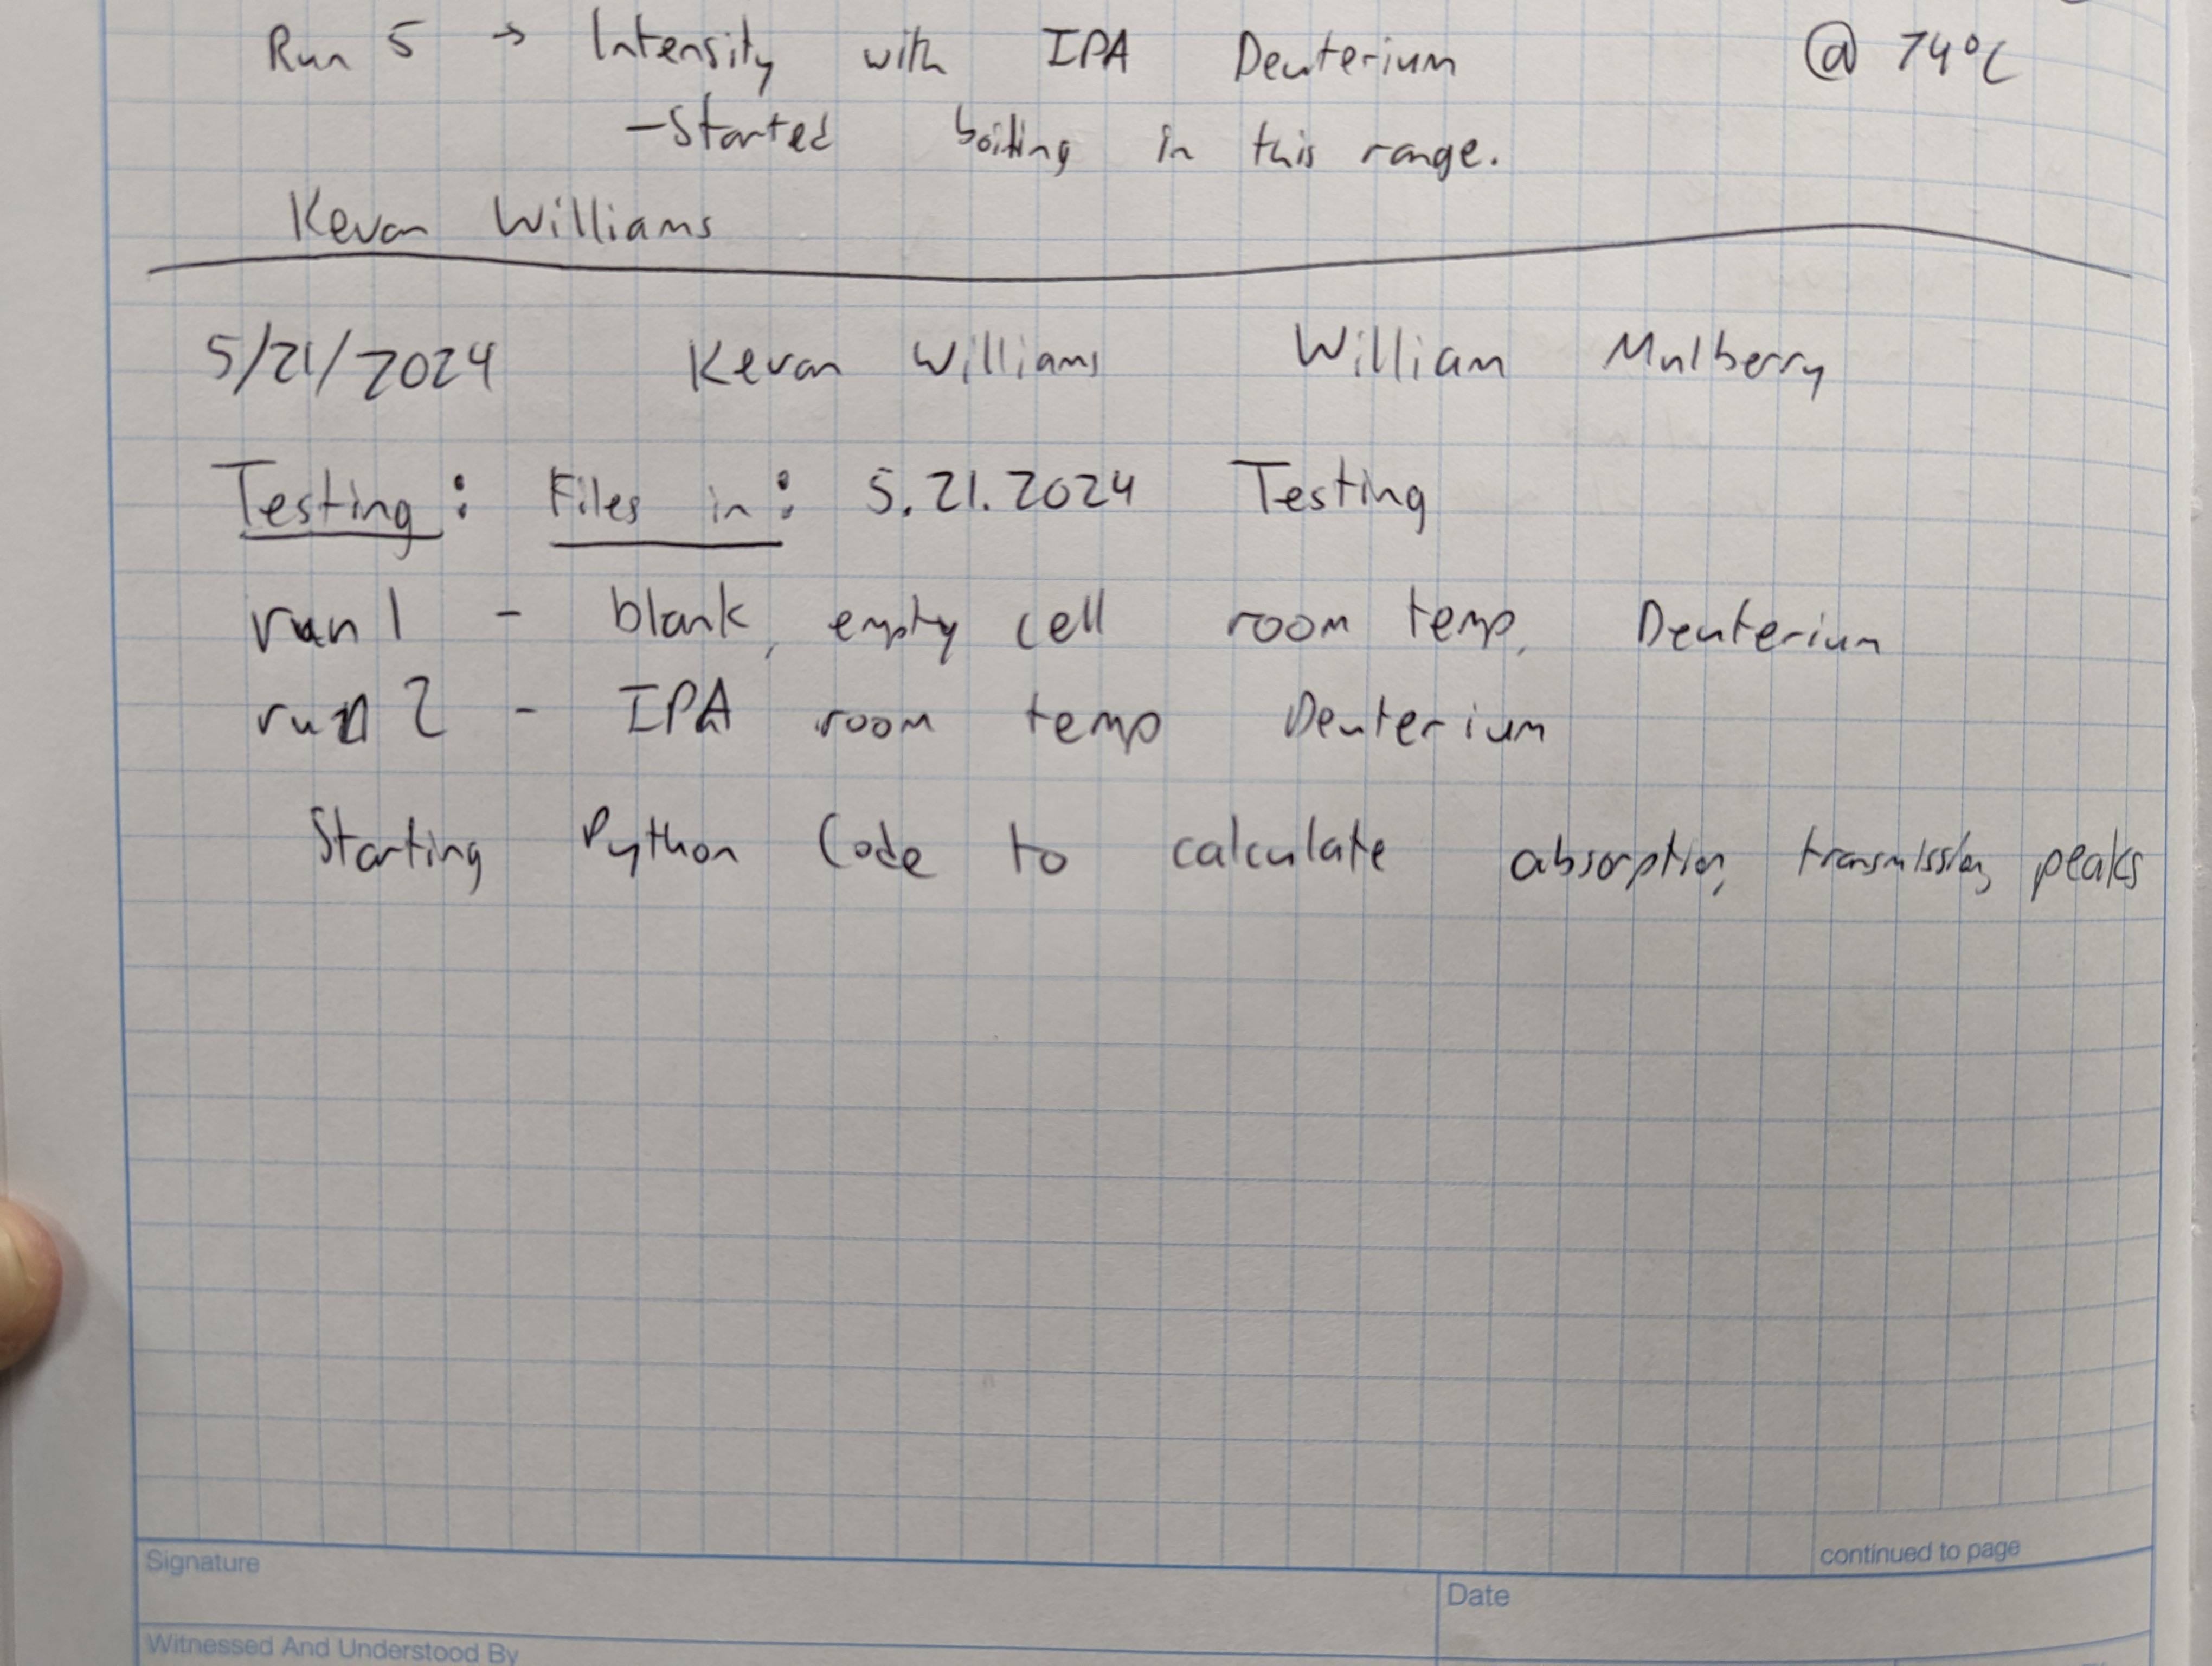 Run 5 → Intensity with IPA Deuterium @ 74°C
- Started boiling in this range.
Kevan Williams
5/21/2024 Kevan Williams William Mulberry
Testing: Files in: 5.21.2024 Testing
run 1 - blank, empty cell room temp, Deuterium
run 2 - IPA room temp Deuterium
Starting Python Code to calculate absorption, transmission, peaks
continued to page
Signature
Date
Witnessed And Understood By